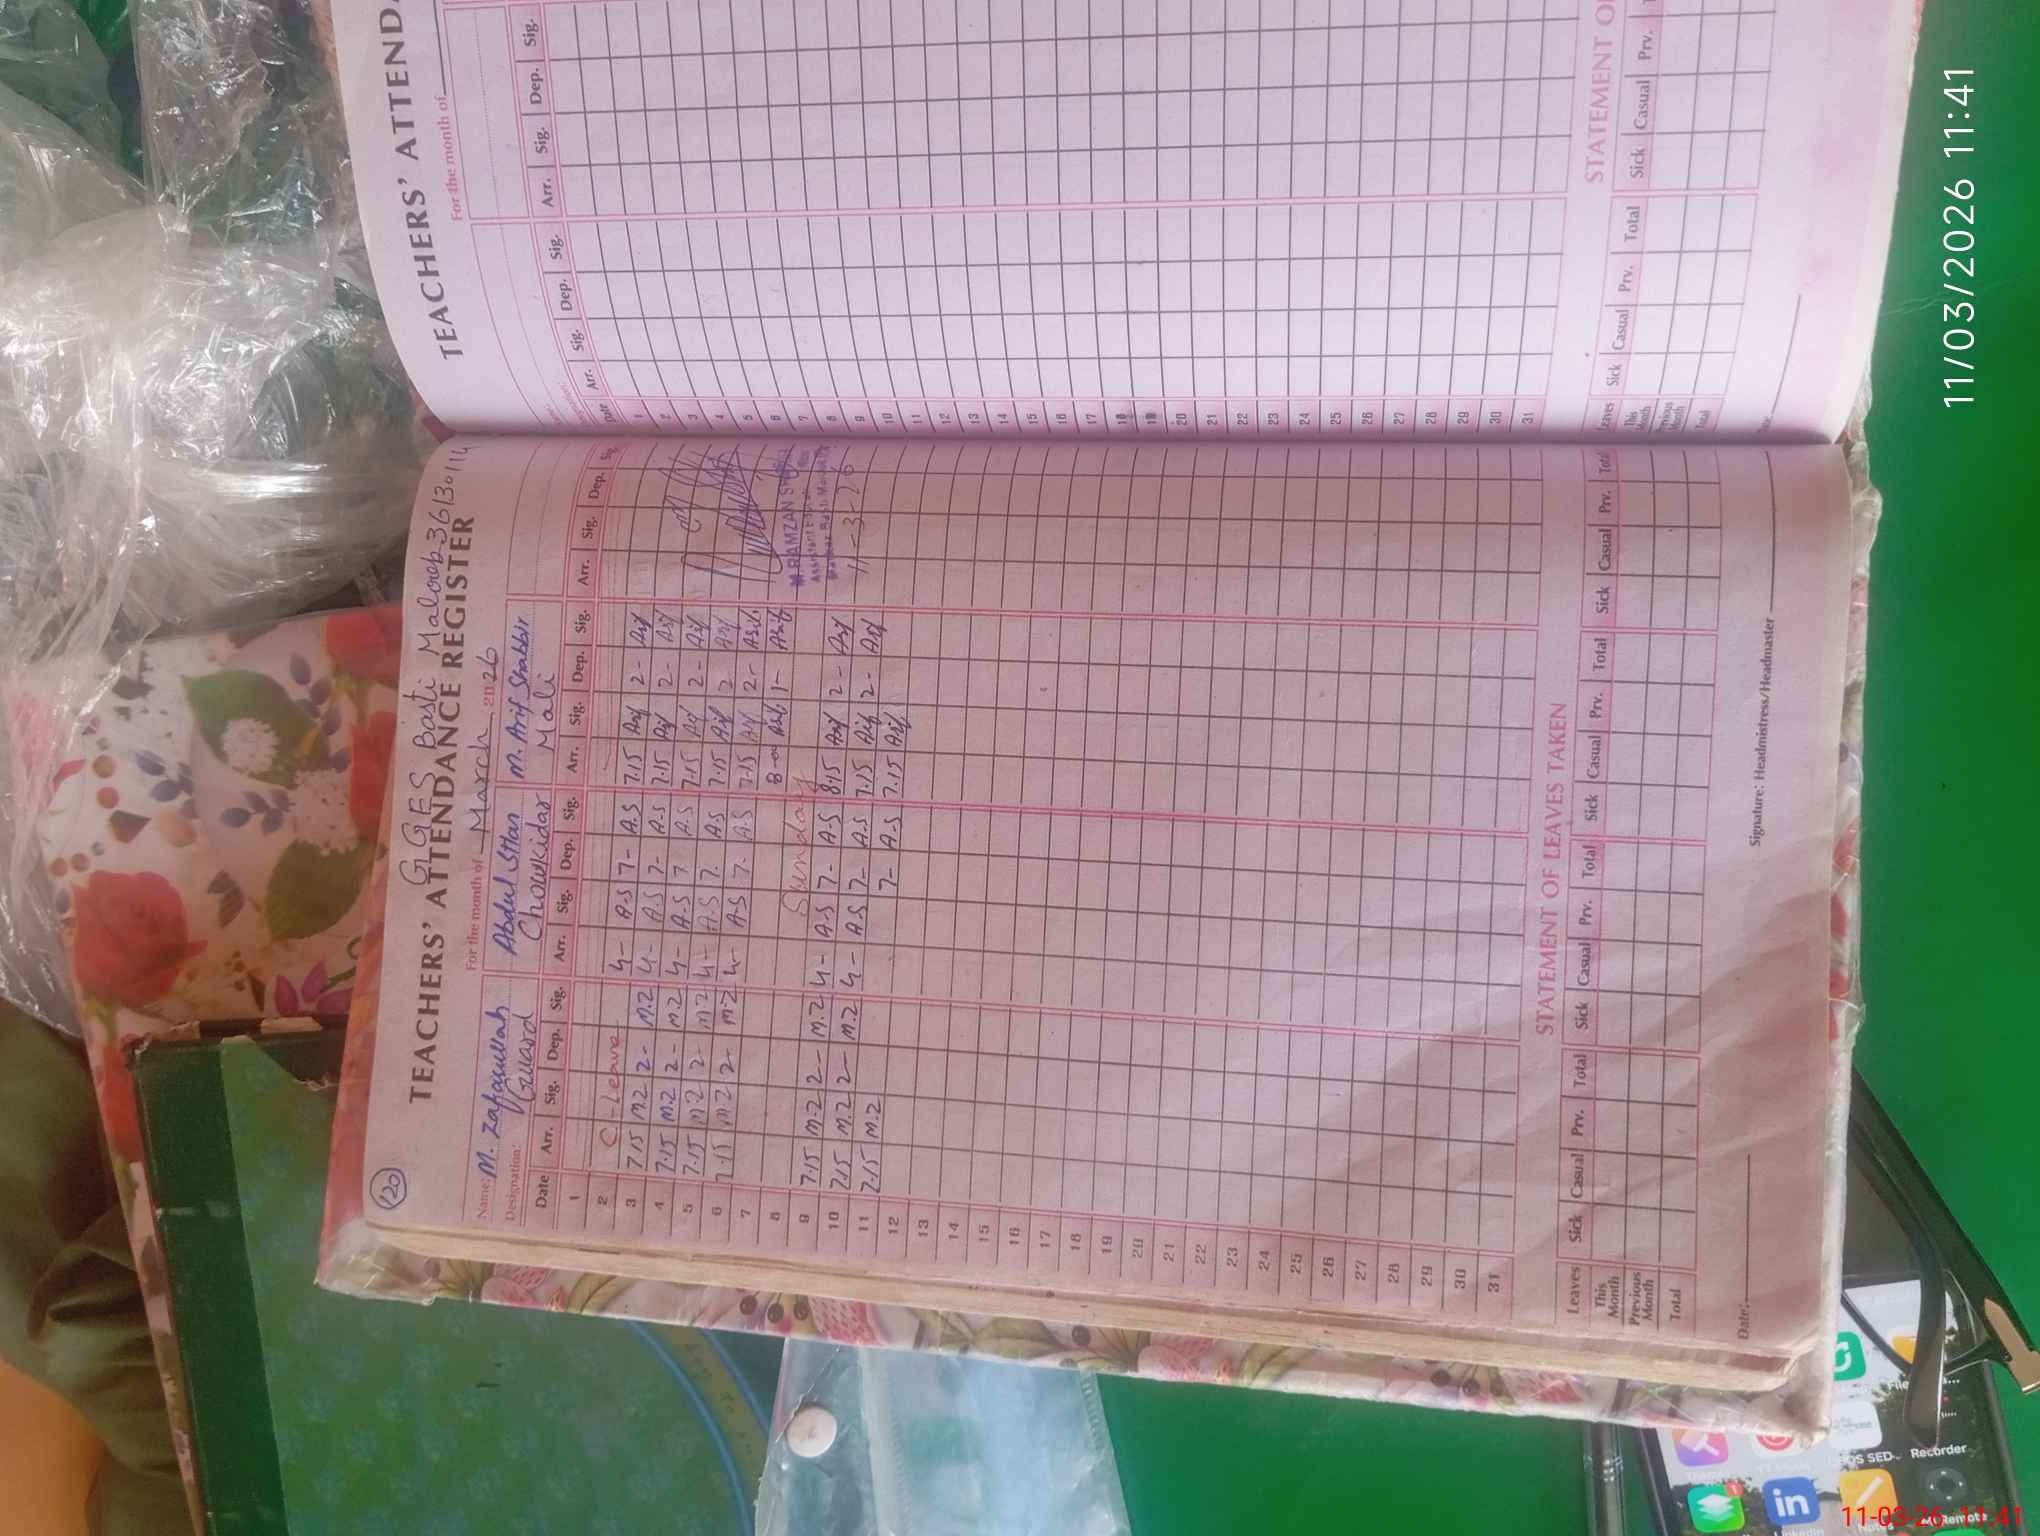 120
GGES Basti Malook 36130114
TEACHERS' ATTENDANCE REGISTER
For the month of March, 2026
Name: M. Zafarullah Abdul Sttar M. Arif Shabbir
Designation: Guard Chowkidar Mali
Date Arr. Sig. Dep. Sig. Arr. Sig. Dep. Sig. Arr. Sig. Dep. Sig. Arr. Sig. Dep. Sig.
1
2 C-Leave 4- A-S 7- A-S 7.15 Arif 2- Arif
3 7.15 M.Z 2- M.Z 4- A-S 7- A-S 7.15 Arif 2- Arif
4 7.15 M.Z 2- M.Z 4- A-S 7 A-S 7.15 Arif 2- Arif
5 7.15 M.Z 2- M.Z 4- A-S 7. A-S 7.15 Arif 2 Arif
6 7.15 M.Z 2- M.Z 4- A-S 7. A-S 7.15 Arif 2- Arif
7 8-00 Arif 1- Arif
8 Sunday
9 7.15 M.Z 2- M.Z 4- A-S 7- A-S 8.15 Arif 2- Arif
10 7.15 M.Z 2- M.Z 4- A-S 7- A-S 7.15 Arif 2- Arif
11 7.15 M.Z 7- A-S 7.15 Arif
M RAMZAN
11-3-26
12
13
14
15
16
17
18
19
20
21
22
23
24
25
26
27
28
29
30
31
STATEMENT OF LEAVES TAKEN
Leaves Sick Casual Prv. Total Sick Casual Prv. Total Sick Casual Prv. Total Sick Casual Prv. Total
This Month
Previous Month
Total
Date: Signature: Headmistress/Headmaster
TEACHERS' ATTENDA
For the month of
Date Arr. Sig. Dep. Sig. Arr. Sig. Dep. Sig.
1
2
3
4
5
6
7
8
9
10
11
12
13
14
15
16
17
18
19
20
21
22
23
24
25
26
27
28
29
30
31
STATEMENT O
Leaves Sick Casual Prv. Total Sick Casual Prv.
This Month
Previous Month
Total
11/03/2026 11:41
Recorder
in
LinkedIn
Remote
11-03-26 11:41